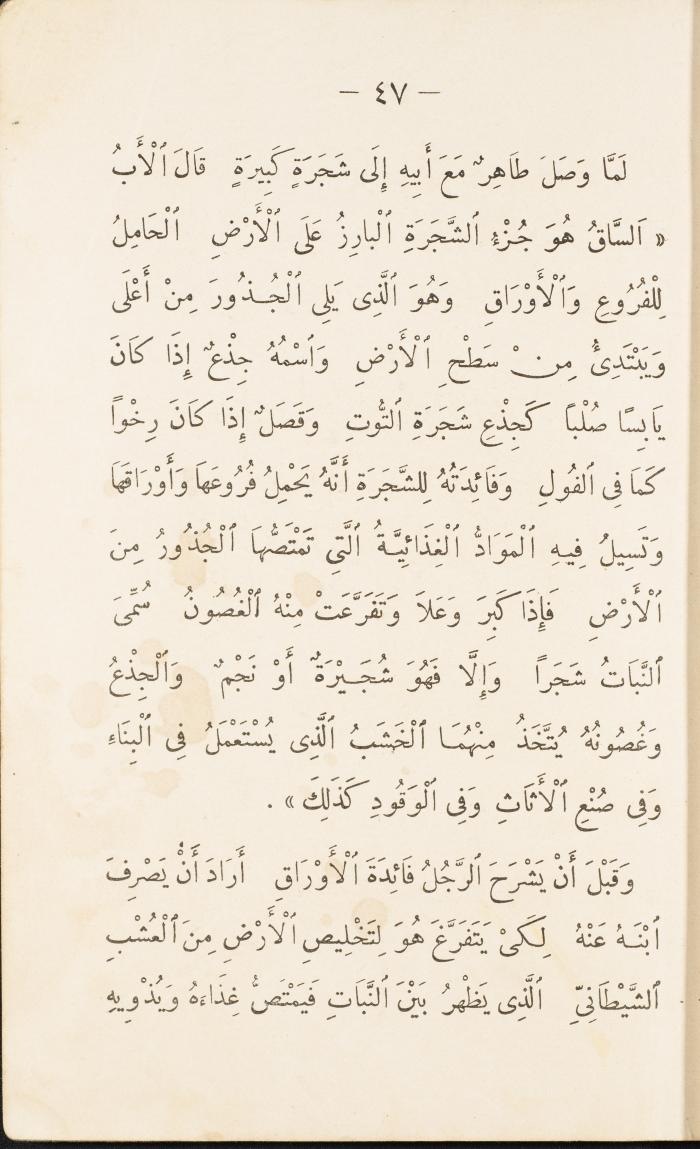 — ٤٧ —
لَمَّا وَصَلَ طَاهِرٌ مَعَ أَبِيهِ إِلَى شَجَرَةٍ كَبِيرَةٍ قَالَ ٱلْأَبُ
« اَلسَّاقُ هُوَ جُزْءُ ٱلشَّجَرَةِ ٱلْبَارِزُ عَلَى ٱلْأَرْضِ ٱلْحَامِلُ
لِلْفُرُوعِ وَٱلْأَوْرَاقِ وَهُوَ ٱلَّذِى يَلِى ٱلْجُذُورَ مِنْ أَعْلَى
وَيَبْتَدِئُ مِنْ سَطْحِ ٱلْأَرْضِ وَٱسْمُهُ جِذْعٌ إِذَا كَانَ
يَابِسًا صُلْبًا كَجِذْعِ شَجَرَةِ ٱلتُّوتِ وَقَصَلٌ إِذَا كَانَ رِخْوًا
كَمَا فِى ٱلفُولِ وَفَائِدَتُهُ لِلشَّجَرَةِ أَنَّهُ يَحْمِلُ فُرُوعَهَا وَأَوْرَاقَهَا
وَتَسِيلُ فِيهِ ٱلْمَوَادُّ ٱلْغِذَائِيَّةُ ٱلَّتِى تَمْتَصُّهَا ٱلْجُذُورُ مِنَ
ٱلْأَرْضِ فَإِذَا كَبِرَ وَعَلاَ وَتَفَرَّعَتْ مِنْهُ ٱلْغُصُونُ سُمِّىَ
ٱلنَّبَاتُ شَجَراً وَإِلَّا فَهُوَ شُجَيْرَةٌ أَوْ نَجْمٌ وَٱلْجِذْعُ
وَغُصُونُهُ يُتَّخَذُ مِنْهُمَا ٱلْخَشَبُ ٱلَّذِى يُسْتَعْمَلُ فِى ٱلْبِنَاءِ
وَفِى صُنْعِ ٱلْأَثَاثِ وَفِى ٱلْوَقُودِ كَذَلِكَ » .
وَقَبْلَ أَنْ يَشْرَحَ ٱلرَّجُلُ فَائِدَةَ ٱلْأَوْرَاقِ أَرَادَ أَنْ يَصْرِفَ
ٱبْنَهُ عَنْهُ لِكَىْ يَتَفَرَّغَ هُوَ لِتَخْلِيصِ ٱلْأَرْضِ مِنَ ٱلْعُشْبِ
ٱلشَّيْطَانِىِّ ٱلَّذِى يَظْهَرُ بَيْنَ ٱلنَّبَاتِ فَيَمْتَصُّ غِذَاءَهُ وَيُذْوِيهِ